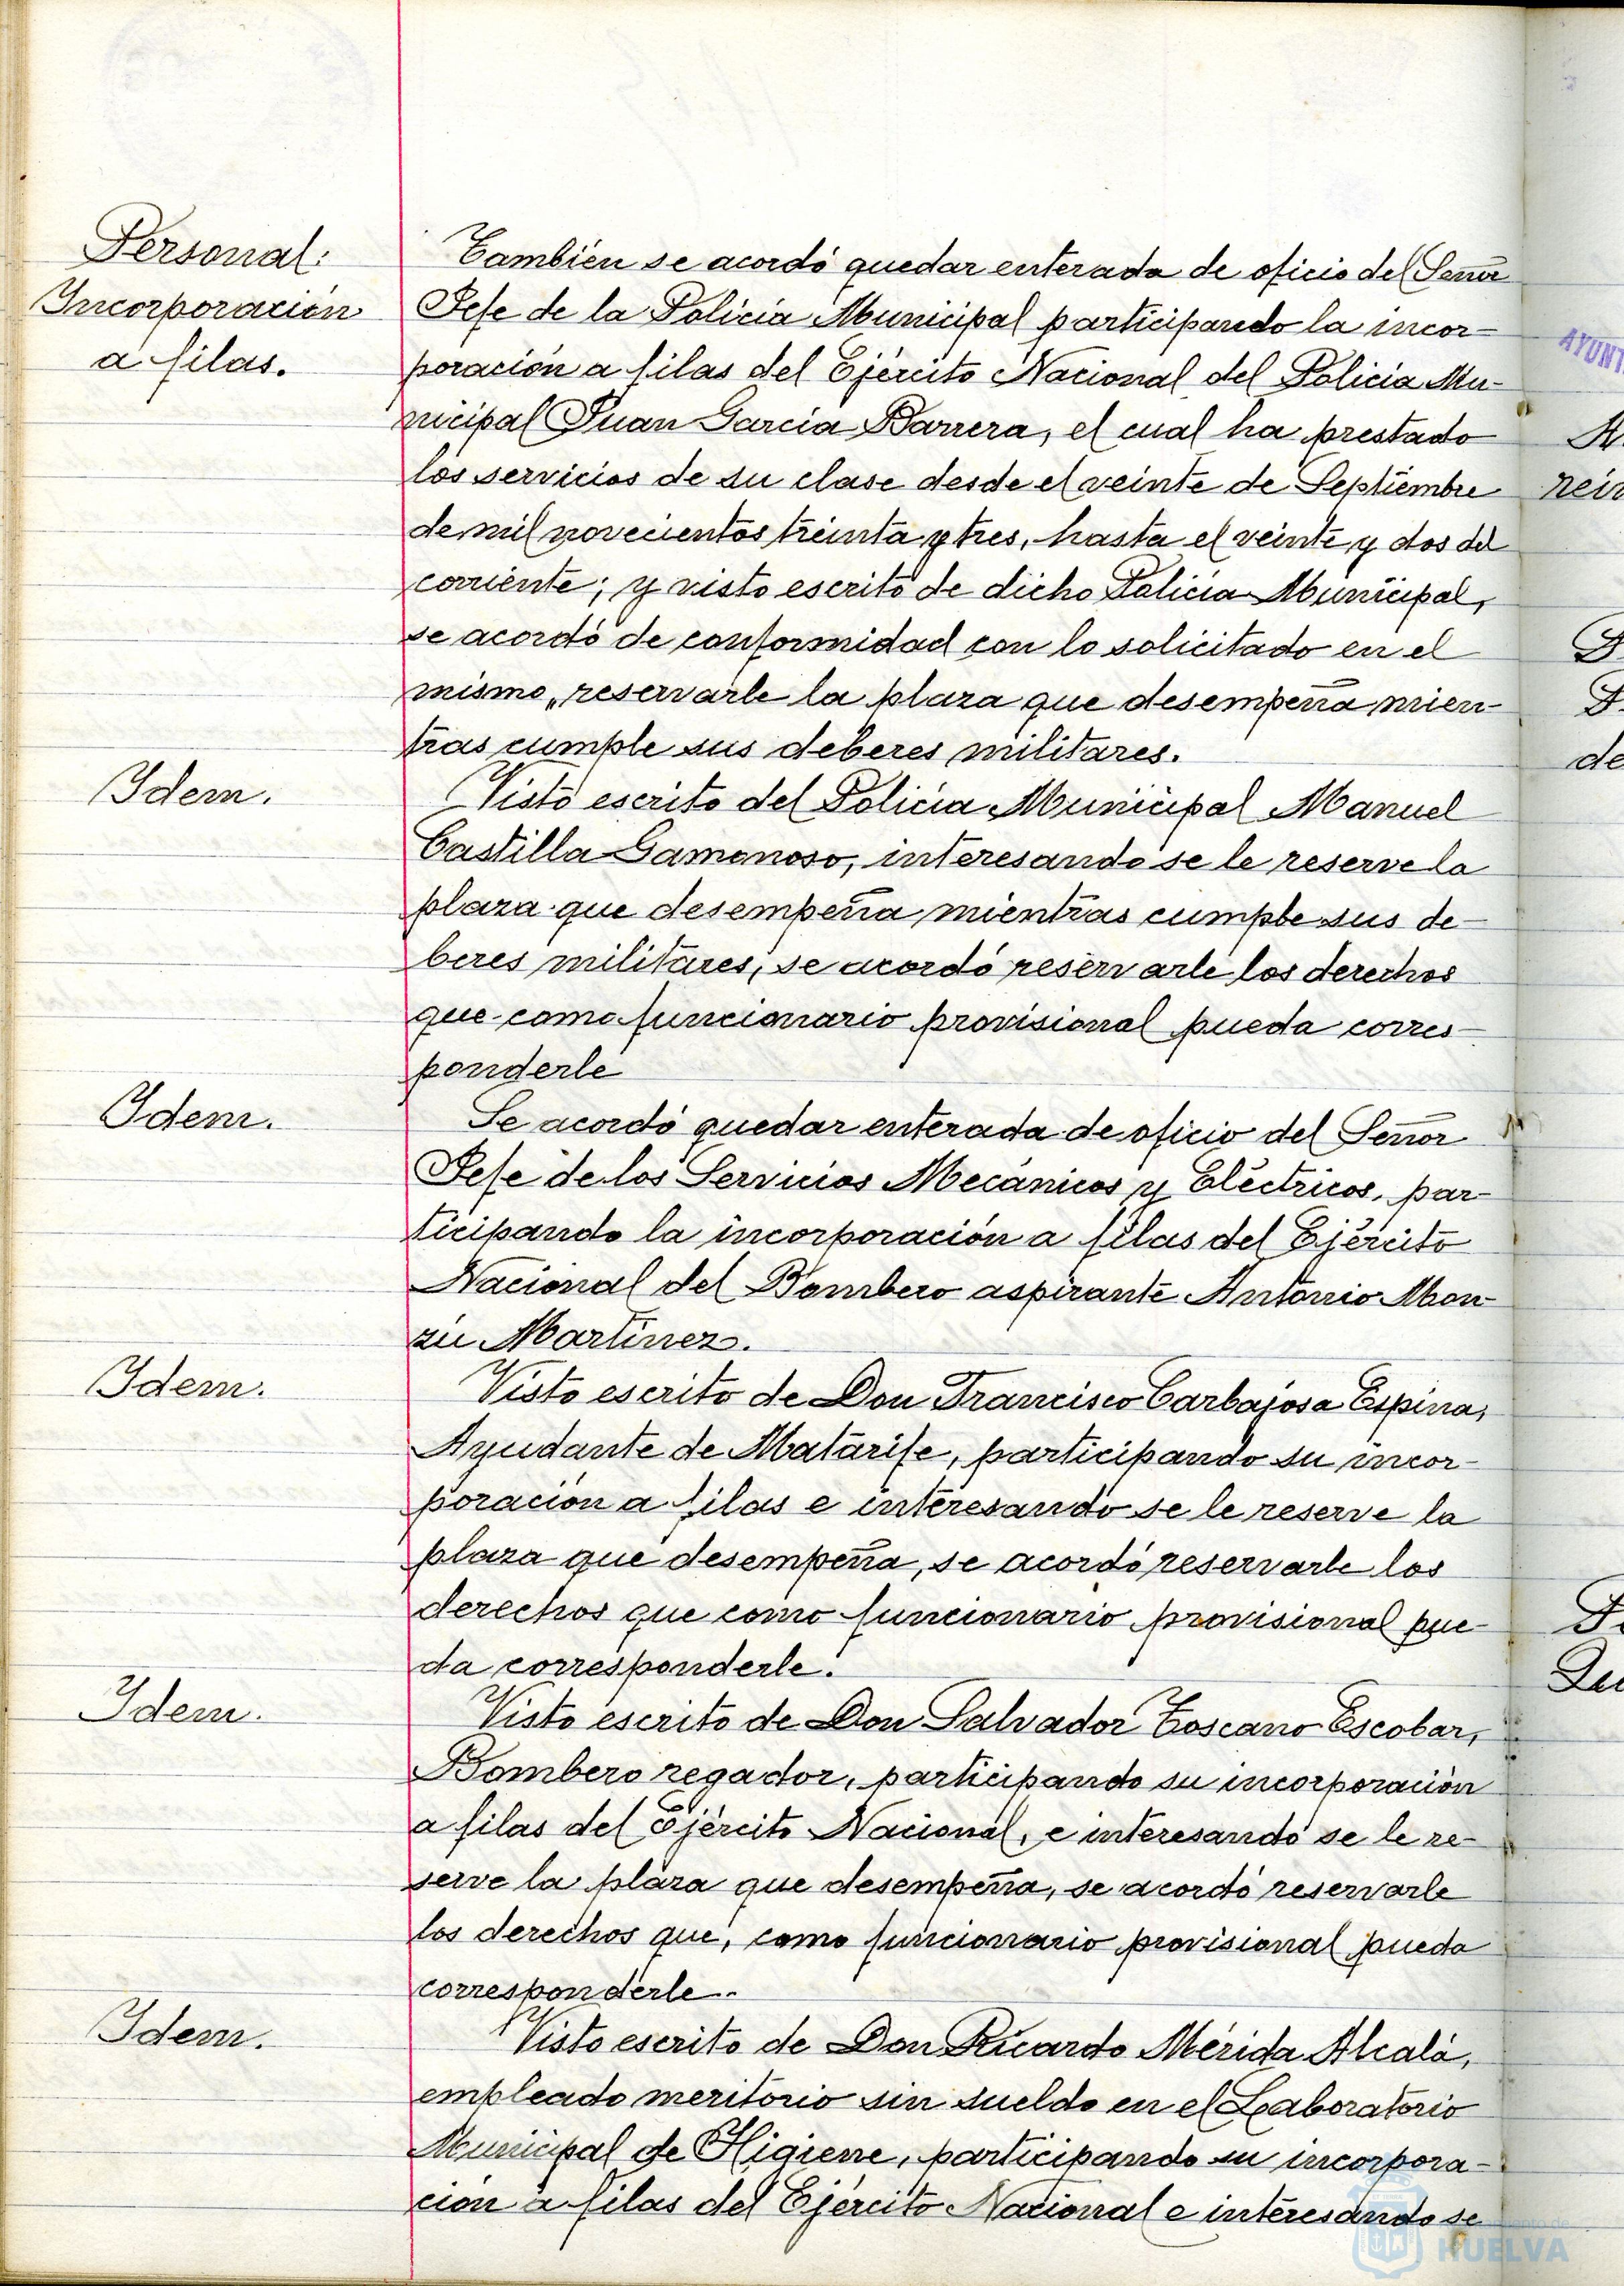 Personal:
Incorporación
a filas.
También se acordó quedar enterada de oficio del Señor
Jefe de la Policía Municipal participando la incor-
poración a filas del Ejército Nacional del Policía Mu-
nicipal Juan García Barrera, el cual ha prestado
los servicios de su clase desde el veinte de Septiembre
de mil novecientos treinta y tres, hasta el veinte y dos del
corriente; y visto escrito de dicho Policía Municipal,
se acordó de conformidad con lo solicitado en el
mismo, reservarle la plaza que desempeña mien-
tras cumple sus deberes militares.
Idem.
Visto escrito del Policía Municipal Manuel
Castilla Gamonoso, interesando se le reserve la
plaza que desempeña mientras cumple sus de-
beres militares, se acordó reservarle los derechos
que como funcionario provisional pueda corres-
ponderle
Idem.
Se acordó quedar enterada de oficio del Señor
Jefe de los Servicios Mecánicos y Eléctricos, par-
ticipando la incorporación a filas del Ejército
Nacional del Bombero aspirante Antonio Mon-
zu Martínez.
Idem.
Visto escrito de Don Francisco Carbajosa Espina,
Ayudante de Matarife, participando su incor-
poración a filas e interesando se le reserve la
plaza que desempeña, se acordó reservarle los
derechos que como funcionario provisional pue-
da corresponderle.
Idem.
Visto escrito de Don Salvador Toscano Escobar,
Bombero regador, participando su incorporación
a filas del Ejército Nacional, e interesando se le re-
serve la plaza que desempeña, se acordó reservarle
los derechos que, como funcionario provisional pueda
corresponderle.
Idem.
Visto escrito de Don Ricardo Mérida Alcalá,
empleado meritorio sin sueldo en el Laboratorio
Municipal de Higiene, participando su incorpora-
ción a filas del Ejército Nacional e interesando se
HUELVA